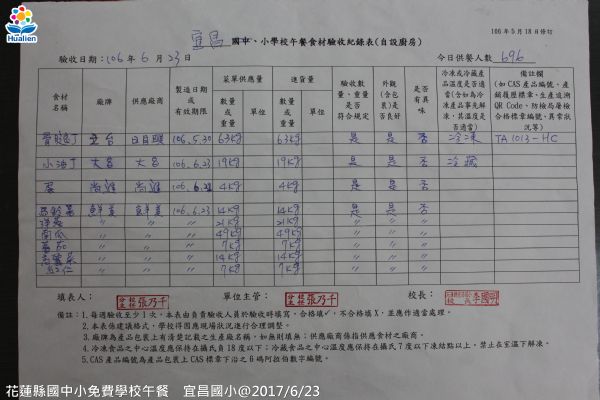 Hualien
106年5月18日修訂
宜昌 國中、小學校午餐食材驗收紀錄表(自設廚房)
驗收日期:106年6月23日 今日供餐人數 696
食材名稱 廠牌 供應廠商 製造日期或有效期限 菜單供應量 進貨量 驗收數量、重量是否符合規定 外觀(含包裝)是否良好 是否有異味 冷凍或冷藏產品溫度是否適當(含如為冷凍產品事先解凍,其溫度是否適當) 備註欄(如CAS產品編號,產銷履歷標章、生產追溯QR Code、防檢局屠檢合格標章編號、異常狀況等)
數量或重量 單位 數量或重量 單位
骨腿丁 106.5.30 63kg 63kg 是 是 否 冷凍 TA1013-HC
小油丁 大名 大名 106.6.23 19kg 19kg 是 是 否 冷藏
蛋 尚雞 尚雞 106.6.22 4kg 4kg 是 是 否
馬鈴薯 鮮美 鮮美 106.6.23 14kg 14kg 是 是 否
洋蔥 〃 〃 〃 21kg 21kg
南瓜 〃 〃 〃 49kg 49kg
蕃茄 〃 〃 〃 7kg 7kg
高麗菜 〃 〃 〃 14kg 14kg
〃 〃 〃 7kg 7kg
填表人: 張乃千 單位主管: 張乃千 校長: 李國明
備註:1.每週驗收至少1次,本表由負責驗收人員於驗收時填寫,合格填✓,不合格填X,並應作適當處理。
2.本表係建議格式,學校得因應現場狀況進行合理調整。
3.廠牌為產品包裝上有清楚記載之生產廠名稱,如無則填無;供應廠商係指供應食材之廠商。
4.冷凍食品之中心溫度應保持在攝氏負18度以下;冷藏食品之中心溫度應保持在攝氏7度以下凍結點以上,禁止在室溫下解凍。
5.CAS產品編號為產品包裝上CAS標章下沿之6碼阿拉伯數字編號。
花蓮縣國中小免費學校午餐 宜昌國小@2017/6/23